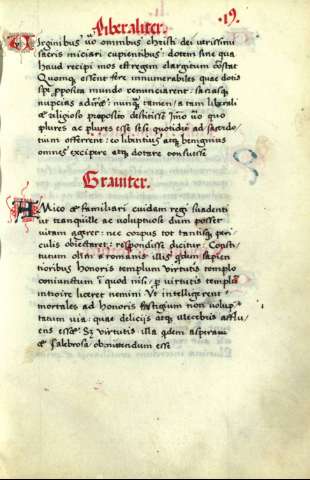 19.
Liberaliter.
Virginibus uo omnibus christi dei uerissimi
sacris iniciari cupientibus: dotem sine qua
haud recipi mos est regem elargitum constat
Quomqz essent fere innumerabiles quae dotis
spe proposita mundo renunciarent: sacrasqz
nupcias adirent: nunqz tamen a tam liberali
et religioso proposito destitisse Imo uo quo
plures ac plures esse sesi quotidie ad sacerdo/
tium offerrent: eo libentius atqz benignius
omnes excipere atqz dotare consueuisse
Grauiter.
AMico et familiari cuidam regi suadenti
ut tranquille ac uoluptuose dum posset
uitam ageret: nec corpus tot tantisqz peri/
culis obiectaret: respondisse dicitur. Consti/
tutum olim a romanis illis quidem sapien
tioribus honoris templum uirtutis templo
coniunctum in quod nisi per uirtutis templum
introire liceret nemini Vt intelligerent
mortales ad honoris fastigium non uolup/
tatum uia: quae deliciis atqz illecebris afflu/
ens esset: Sz uirtutis illa quidem asperam
et salebrosa obnitendum esse